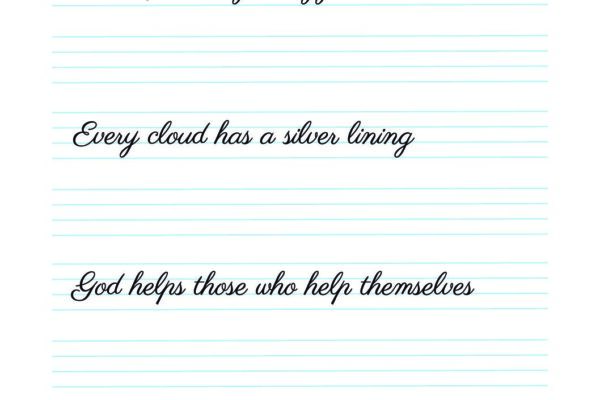 Every cloud has a silver lining
God helps those who help themselves